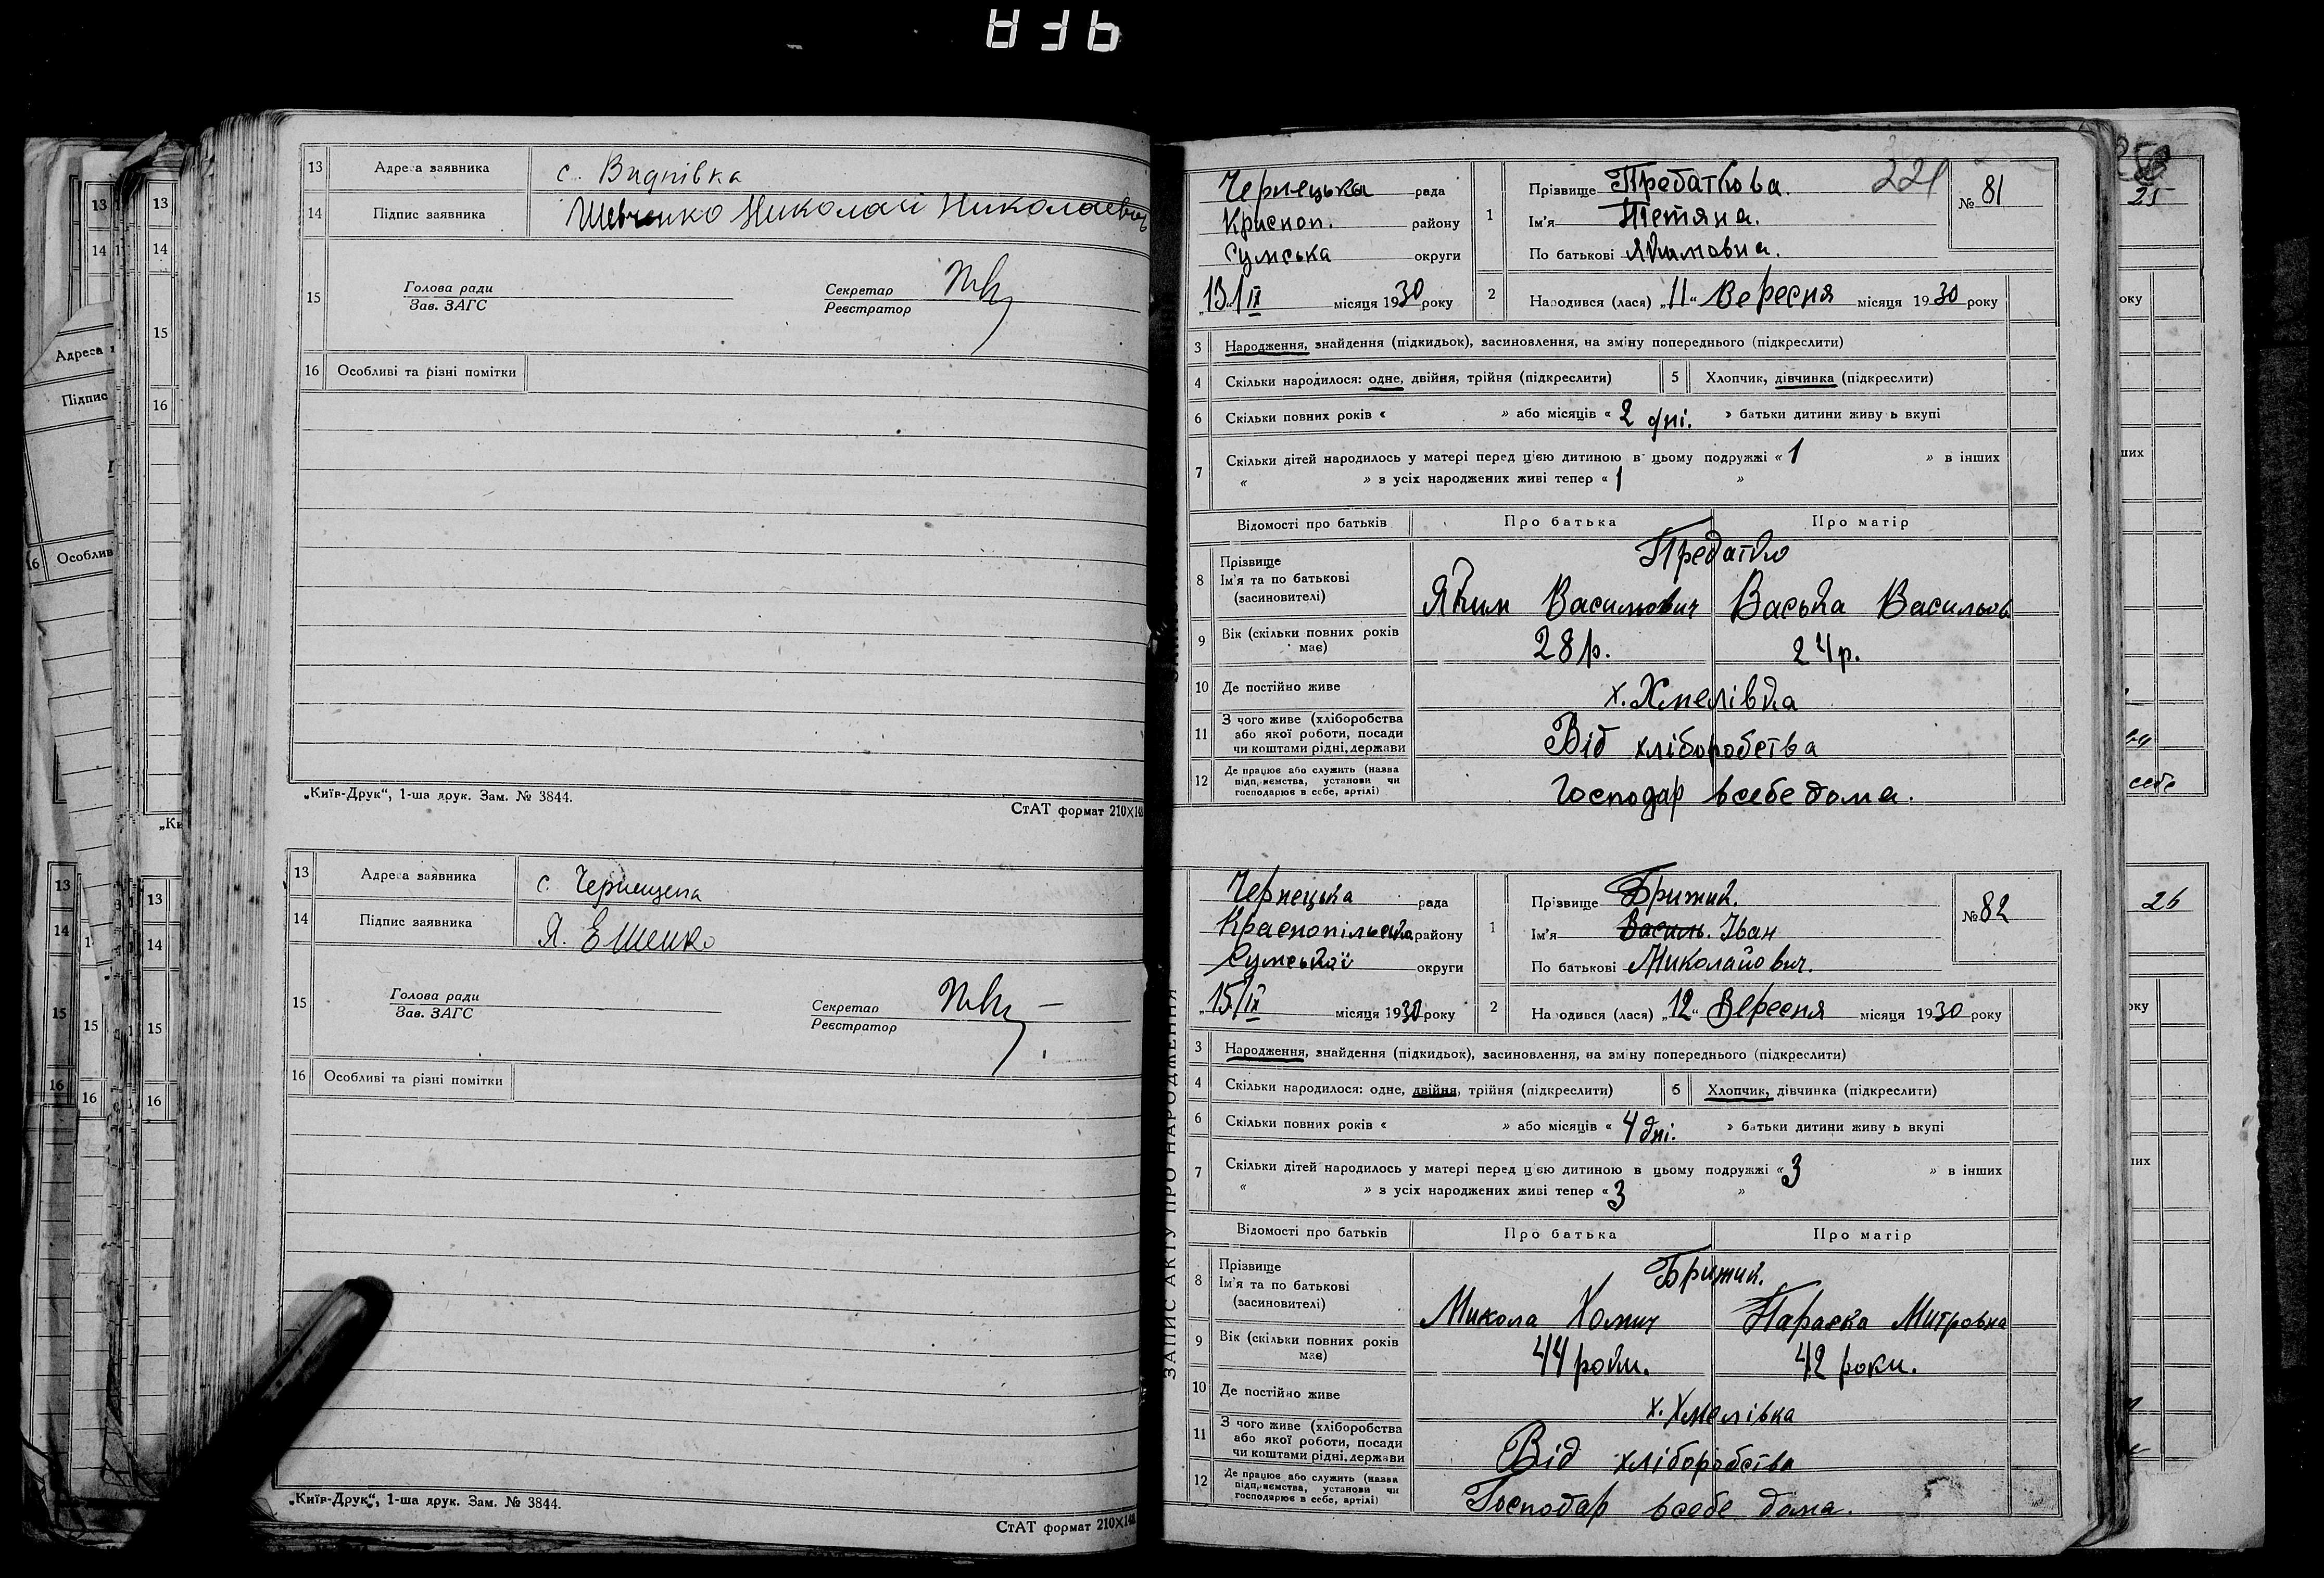 13 Адреса заявника с. Видпівка
14 Підпис заявника Шевченко Николай Николаевич
15 Голова ради
Зав. ЗАГС
Секретар
Реєстратор
16 Особливі та різні помітки
„Київ-Друк“, 1-ша друк. Зам. № 3844.
СтАТ формат 210×148
13 Адреса заявника с. Чернещена
14 Підпис заявника Я. Ешенко
15 Голова ради
Зав. ЗАГС
Секретар
Реєстратор
16 Особливі та різні помітки
„Київ-Друк“, 1-ша друк. Зам. № 3844.
СтАТ формат 210×148
221
Чернецька рада
Красноп. району
Сумська округи
„13“ IX місяця 1930 року
1 Прізвище Предаткова.
Ім'я Тетяна.
По батькові Якимовна.
№ 81
2 Народився (лася) „11“ Вересня місяця 1930 року
3 Народження, знайдення (підкидьок), засиновлення, на зміну попереднього (підкреслити)
4 Скільки народилося: одне, двійня, трійня (підкреслити) 5 Хлопчик, дівчинка (підкреслити)
6 Скільки повних років « » або місяців « 2 дні. » батьки дитини живуть вкупі
7 Скільки дітей народилось у матері перед цією дитиною в цьому подружжі « 1 » в інших
« » з усіх народжених живі тепер « 1 »
Відомості про батьків Про батька Про матір
8 Прізвище Предатко
Ім'я та по батькові
(засиновителі) Яким Васильович Васька Васильов
9 Вік (скільки повних років має) 28 р. 24 р.
10 Де постійно живе х. Хмелівка
11 З чого живе (хліборобства
або якої роботи, посади
чи коштами рідні, держави Від хліборобства
12 Де працює або служить (назва
підприємства, установи чи
господарює в себе, артілі) Господар всебе дома.
ЗАПИС АКТУ ПРО НАРОДЖЕННЯ
Чернецька рада
Краснопільська району
Сумської округи
„15“ IX місяця 1930 року
1 Прізвище Брижий.
Ім'я Василь. Іван
По батькові Миколайович.
№ 82
2 Народився (лася) „12“ Вересня місяця 1930 року
3 Народження, знайдення (підкидьок), засиновлення, на зміну попереднього (підкреслити)
4 Скільки народилося: одне, двійня, трійня (підкреслити) 5 Хлопчик, дівчинка (підкреслити)
6 Скільки повних років « » або місяців « 4 дні. » батьки дитини живуть вкупі
7 Скільки дітей народилось у матері перед цією дитиною в цьому подружжі « 3 » в інших
« » з усіх народжених живі тепер « 3 »
Відомості про батьків Про батька Про матір
8 Прізвище Брижий.
Ім'я та по батькові
(засиновителі) Микола Хомич Параска Митровна
9 Вік (скільки повних років має) 44 роки. 42 роки.
10 Де постійно живе х. Хмелівка
11 З чого живе (хліборобства
або якої роботи, посади
чи коштами рідні, держави Від хліборобства
12 Де працює або служить (назва
підприємства, установи чи
господарює в себе, артілі) Господар всебе дома.
25
себе
26